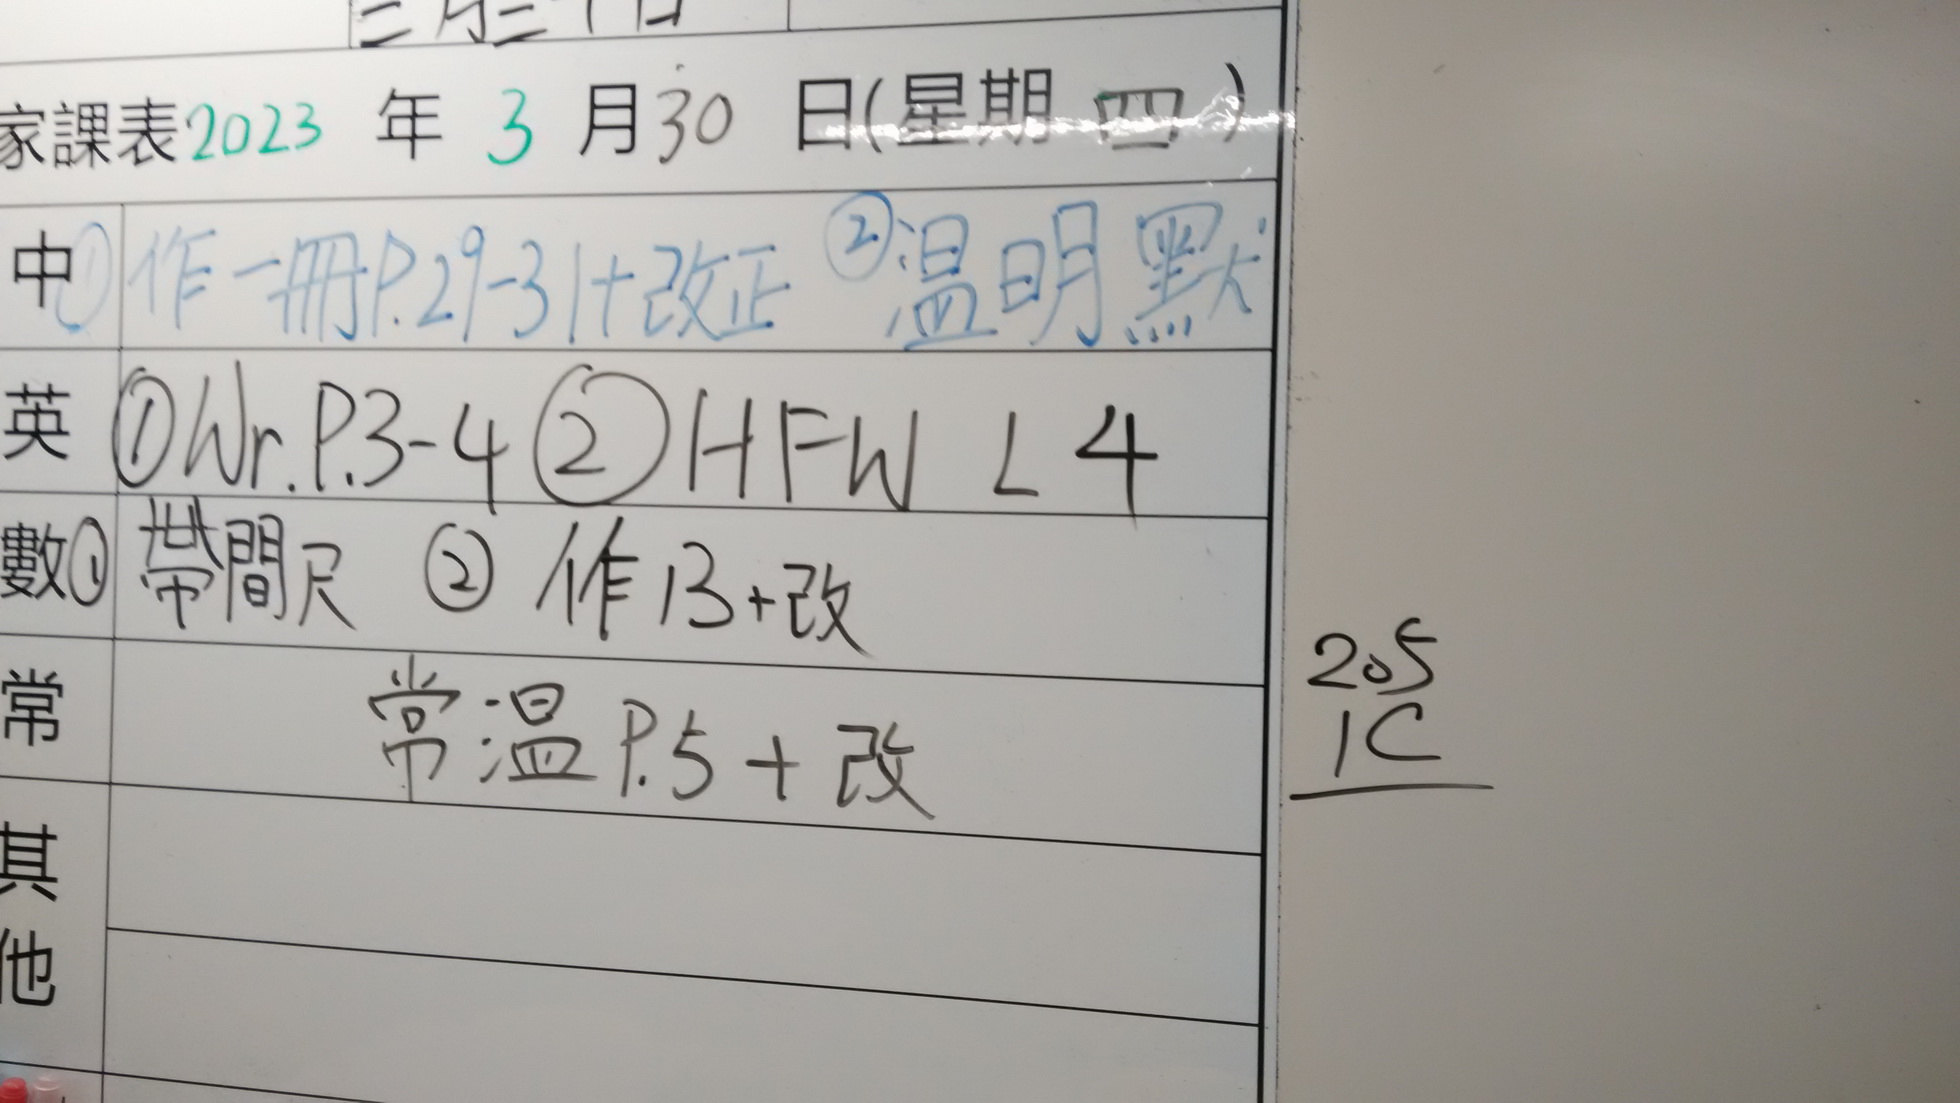 家課表2023 年 3 月 30 日(星期 四)
中 ① 作一冊P.29-31+改正 ②溫明默
英 ①Wr.P.3-4 ②HFW L4
數 ① 帶間尺 ② 作13+改
常 常溫P.5+改
205
1C
其他